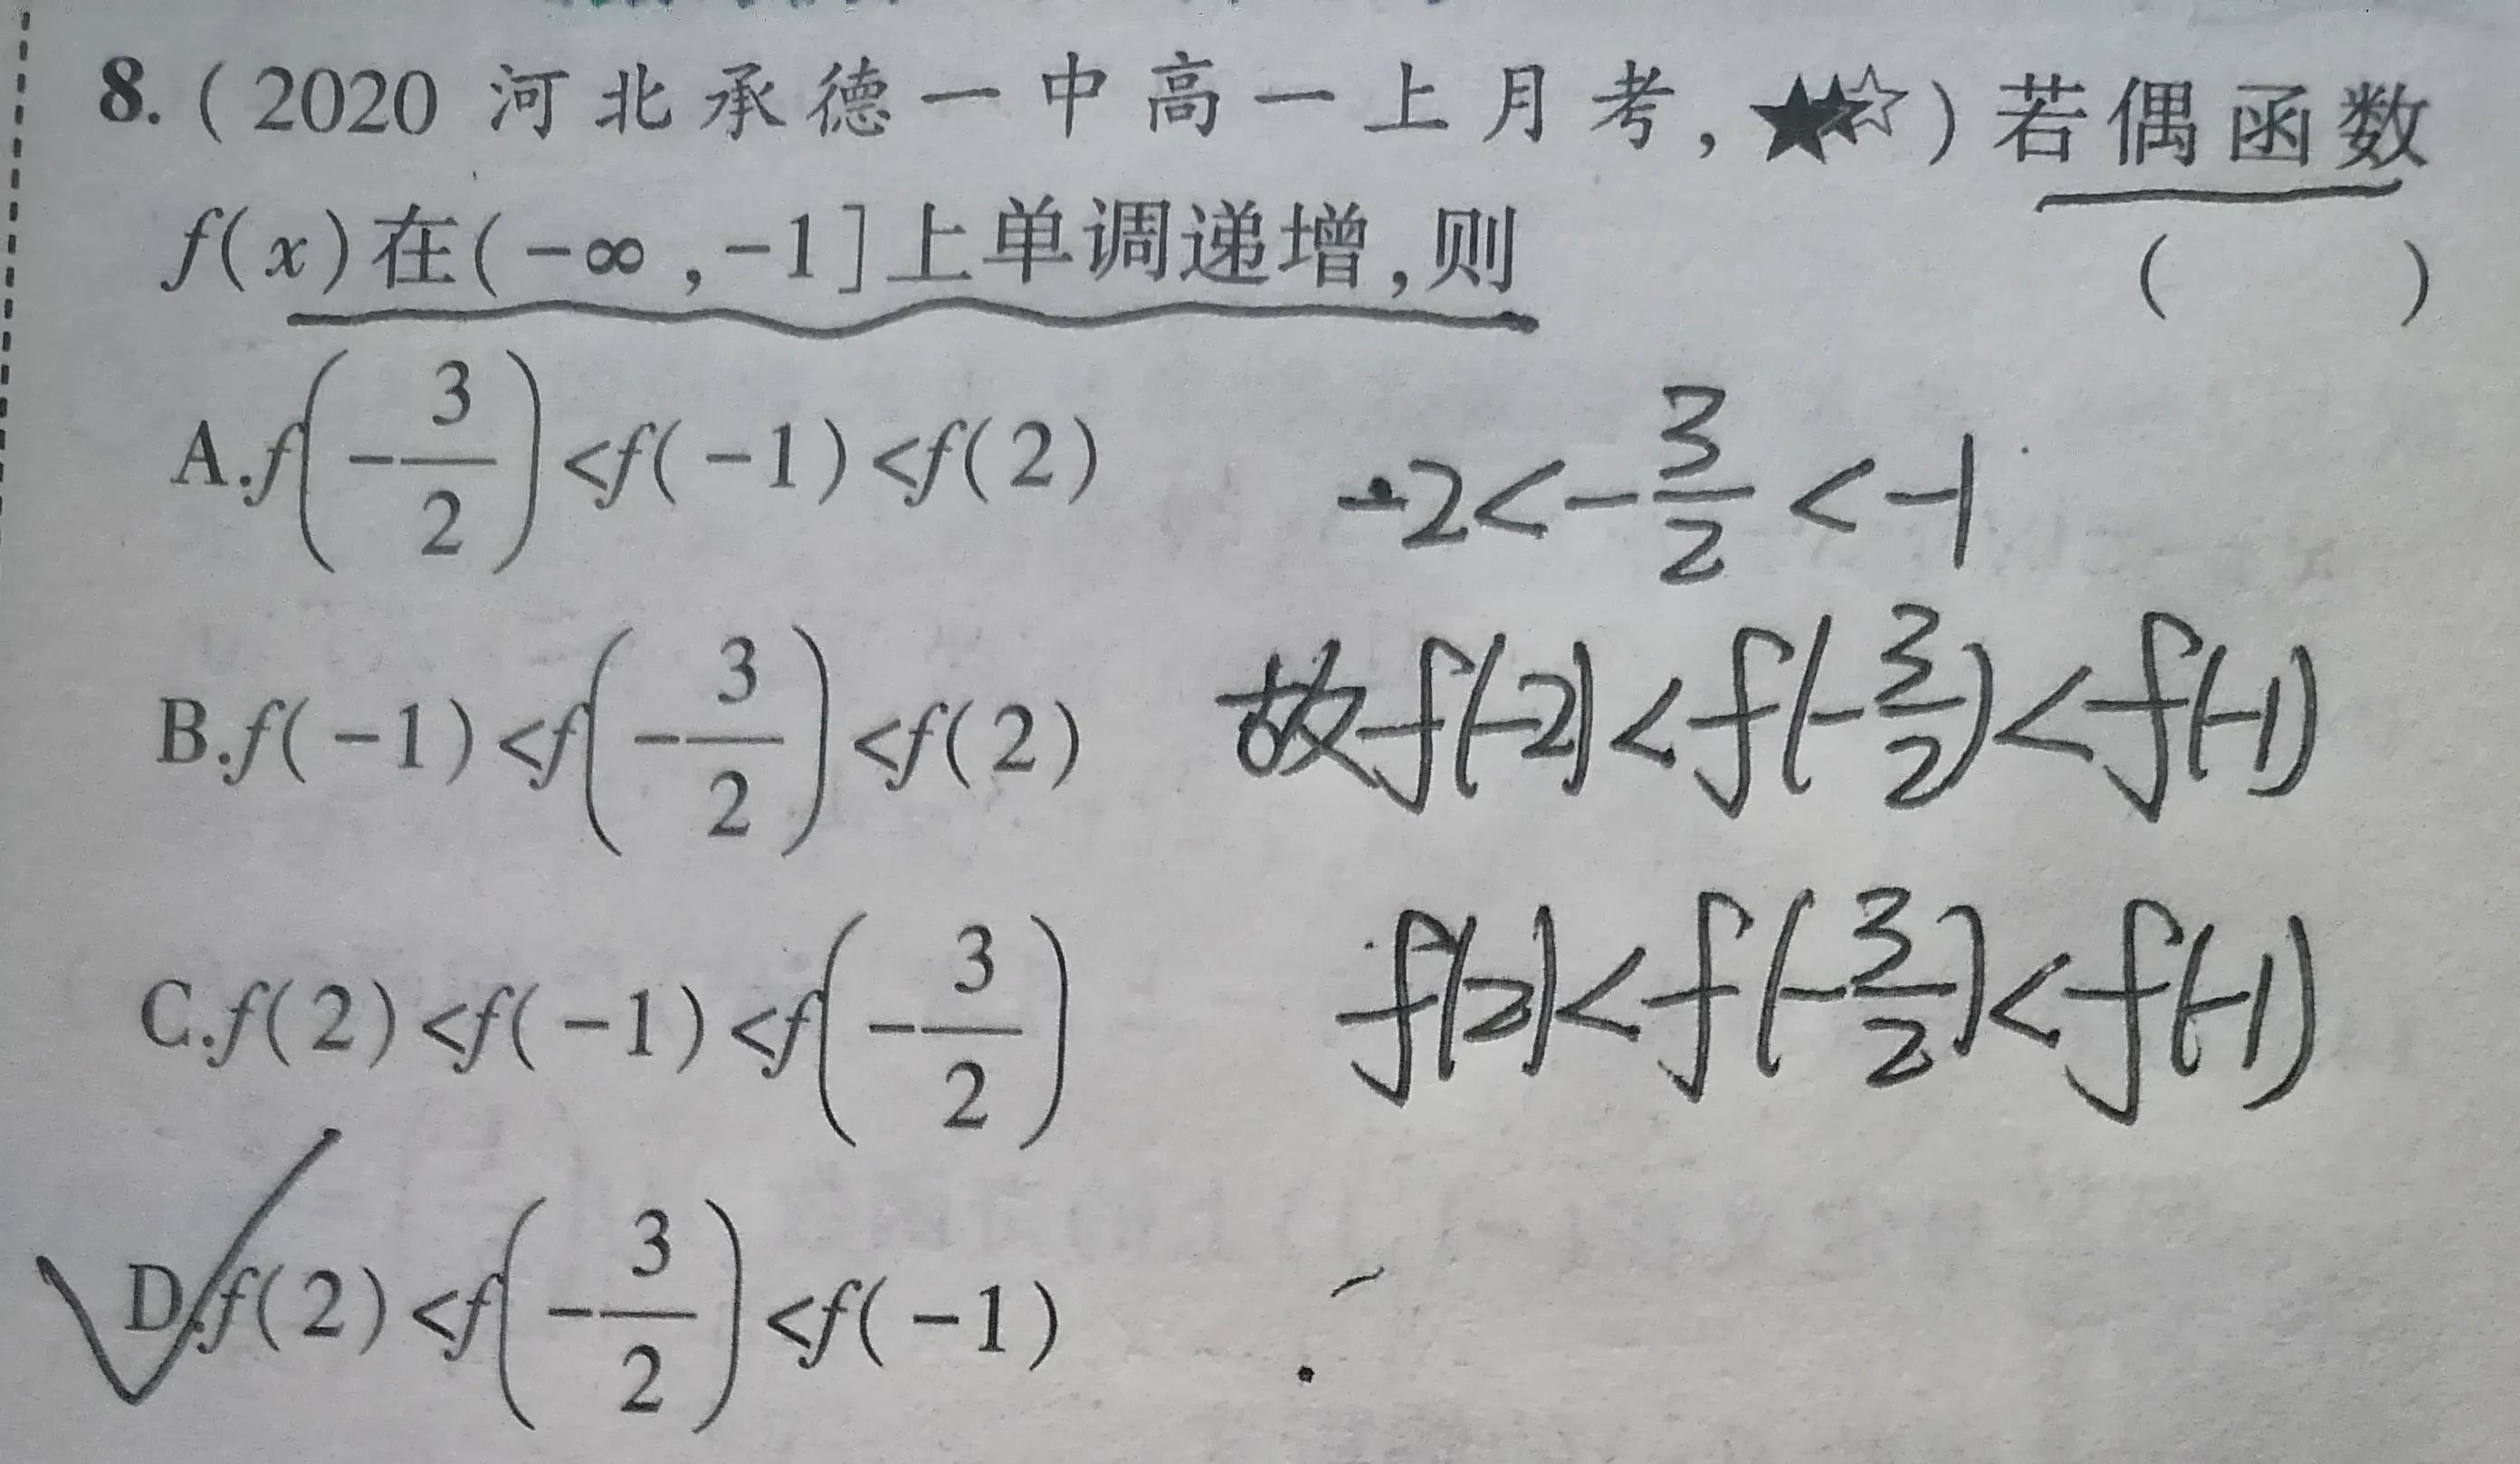 8. (2020 河北承德一中高一上月考, ★★☆) 若偶函数
f(x)在(-∞,-1]上单调递增,则 ( )
A.f(-3/2)<f(-1)<f(2)
-2<-3/2<-1
B.f(-1)<f(-3/2)<f(2)
故f(-2)<f(-3/2)<f(-1)
C.f(2)<f(-1)<f(-3/2)
f(2)<f(-3/2)<f(-1)
D.f(2)<f(-3/2)<f(-1)